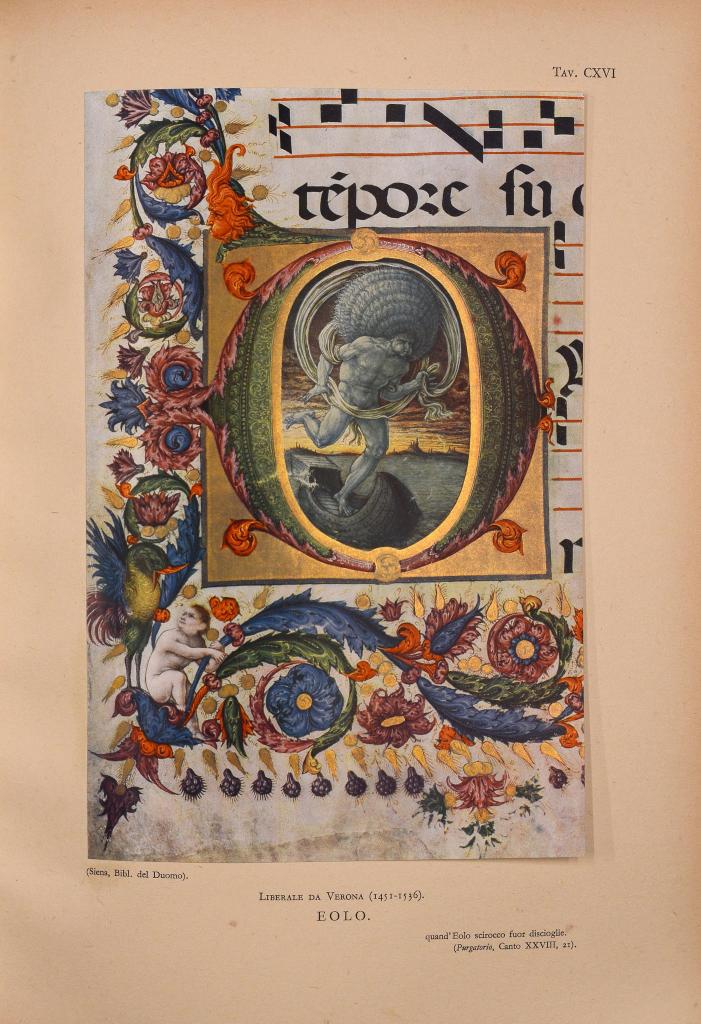 Tav. CXVI
tépore su
(Siena, Bibl. del Duomo).
Liberale da Verona (1451-1536).
EOLO.
quand'Eolo scirocco fuor discioglie.
(Purgatorio, Canto XXVIII, 21).